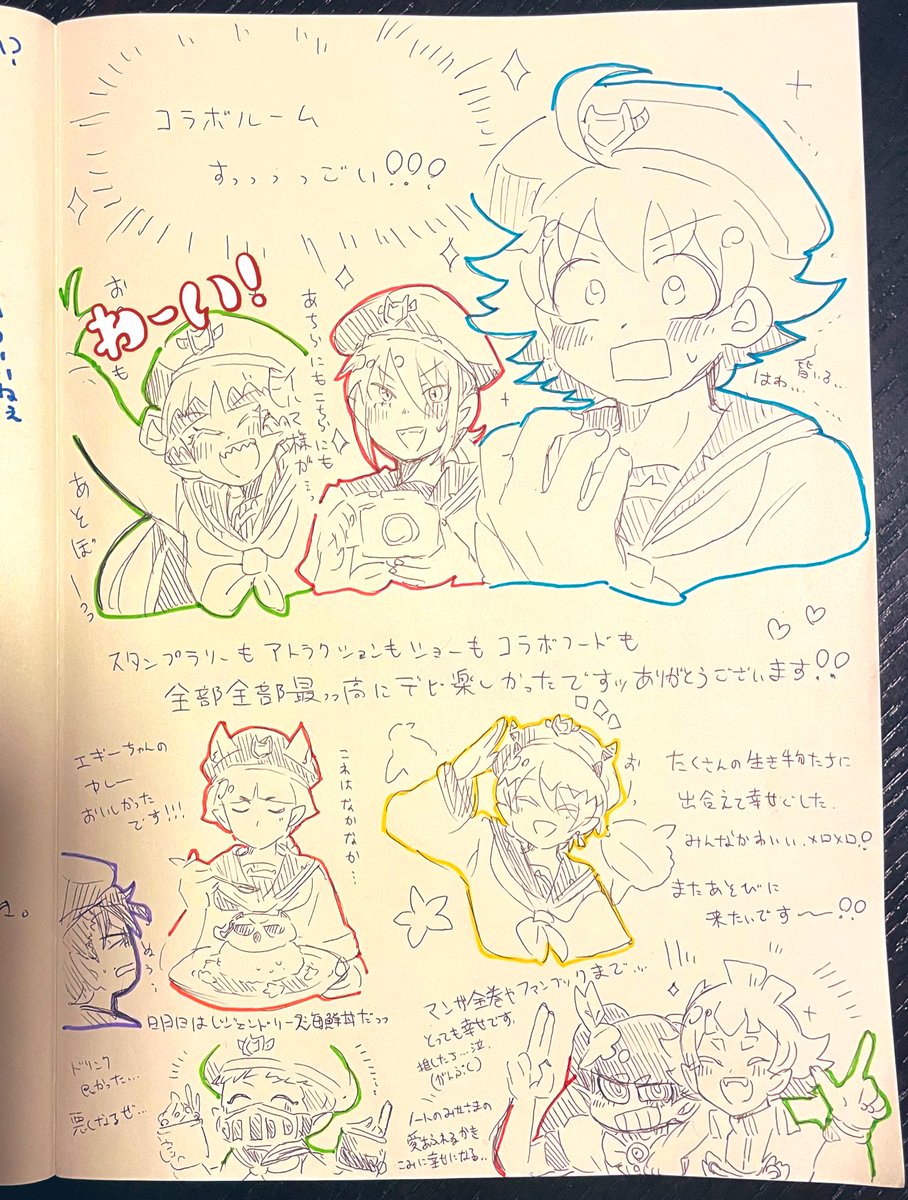 コラボルーム
すっっっっごい!!!
わーい!
あそぼーっっ
あちらにもこちらにも
様が…っ
皆いる…
はわ…
スタンプラリーもアトラクションもショーもコラボフードも
全部全部最っ高にデビ楽しかったですッありがとうございます!!
エギーちゃんの
カレー
おいしかった
です!!!
これはなかなか…
たくさんの生き物たちに
出会えて幸せでした。
みんなかわいい、メロメロ!
またあそびに
来たいです〜!!
海鮮丼だっっ
マンガ全巻やファンブックまで…
とっても幸せです。
推したち…泣
ドリンク
良かった…
悪くなるぜ…
ノートのみなさまの
愛あふれるかき
こみに幸せになる..